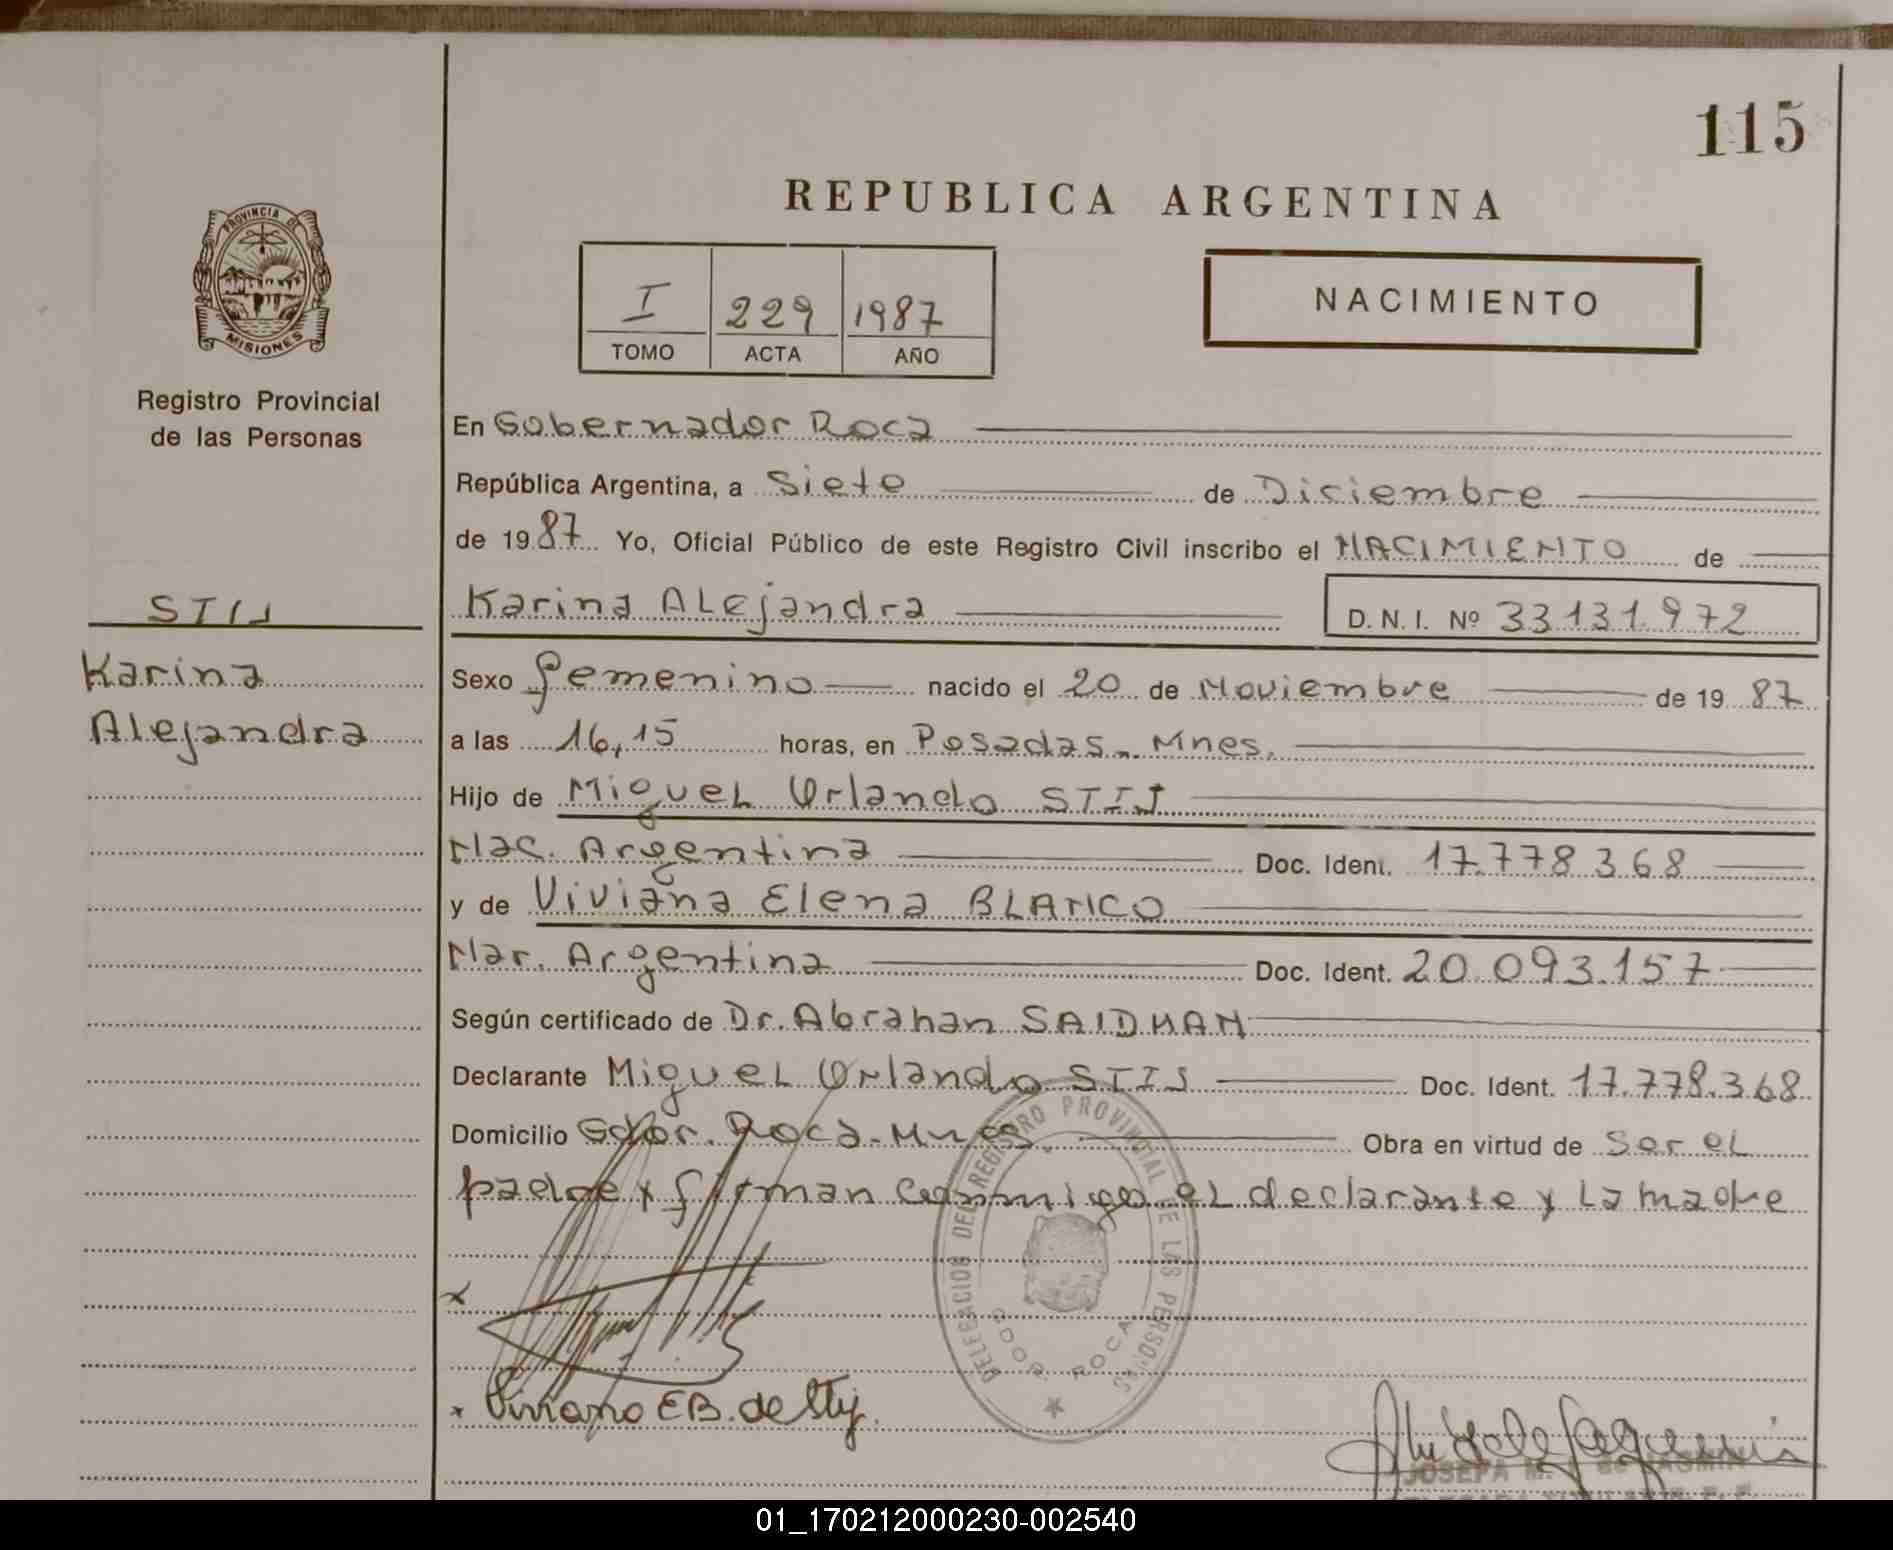 115
REPUBLICA ARGENTINA
PROVINCIA DE
MISIONES
I 229 1987
TOMO ACTA AÑO
NACIMIENTO
Registro Provincial
de las Personas
En Gobernador Roca
República Argentina, a Siete de Diciembre
de 1987 Yo, Oficial Público de este Registro Civil inscribo el NACIMIENTO de
STIJ
Karina Alejandra D. N. I. Nº 33.131.972
Karina
Alejandra
Sexo Femenino nacido el 20 de Noviembre de 1987
a las 16,15 horas, en Posadas. Mnes.
Hijo de Miguel Orlando STIJ
Nac. Argentina Doc. Ident. 17.778.368
y de Viviana Elena BLANCO
Nac. Argentina Doc. Ident. 20.093.157
Según certificado de Dr. Abrahan SAIDMAN
Declarante Miguel Orlando STIJ Doc. Ident. 17.778.368
Domicilio Gdor. Roca-Mnes Obra en virtud de Ser el
padre y firman conmigo el declarante y la madre
DELEGACION DEL REGISTRO PROVINCIAL DE LAS PERSONAS
GDOR. ROCA
x
x Viviana EB. de Stij.
JOSEFA M.
01_170212000230-002540